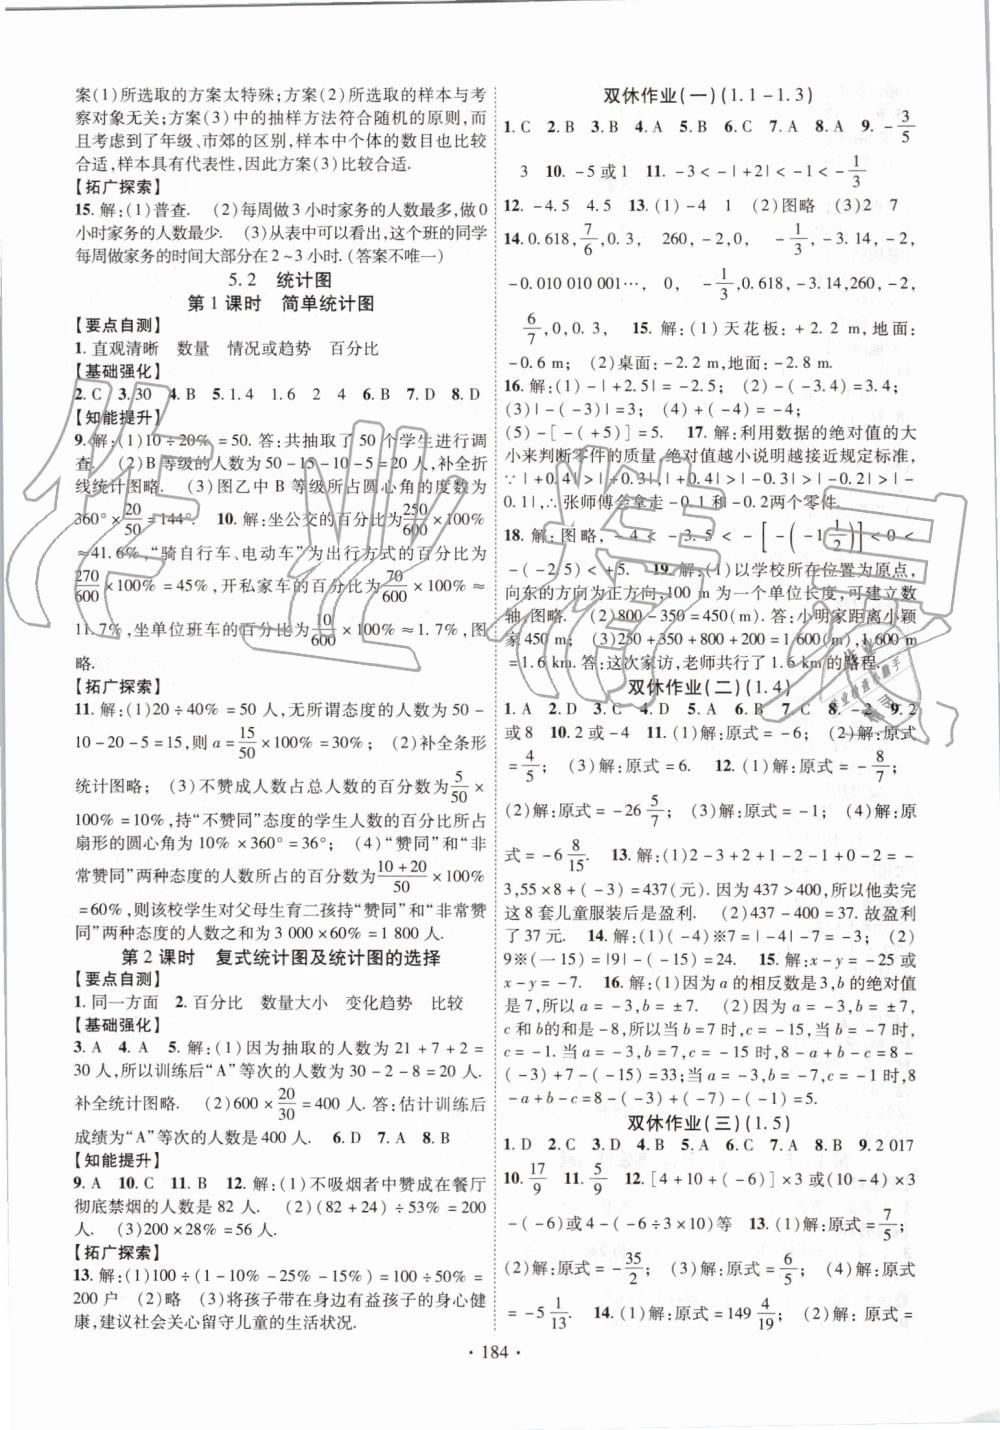 案(1)所选取的方案太特殊;方案(2)所选取的样本与考
察对象无关;方案(3)中的抽样方法符合随机的原则,而
且考虑到了年级、市郊的区别,样本中个体的数目也比较
合适,样本具有代表性,因此方案(3)比较合适.
【拓广探索】
15. 解:(1)普查. (2)每周做3小时家务的人数最多,做0
小时家务的人数最少. (3)从表中可以看出,这个班的同学
每周做家务的时间大部分在2~3小时.(答案不唯一)
5.2 统计图
第1课时 简单统计图
【要点自测】
1. 直观清晰 数量 情况或趋势 百分比
【基础强化】
2. C 3. 30 4. B 5. 1.4 1.6 2 4 6. B 7. D 8. D
【知能提升】
9. 解:(1)10÷20%=50. 答:共抽取了50个学生进行调
查. (2)B等级的人数为50-15-10-5=20人,补全折
线统计图略. (3)图乙中B等级所占圆心角的度数为
360°×20/50=144°. 10. 解:坐公交的百分比为250/600×100%
≈41.6%,“骑自行车、电动车”为出行方式的百分比为
270/600×100%=45%,开私家车的百分比为70/600×100%≈
11.7%,坐单位班车的百分比为10/600×100%≈1.7%,图
略.
【拓广探索】
11. 解:(1)20÷40%=50人,无所谓态度的人数为50-
10-20-5=15,则a=15/50×100%=30%; (2)补全条形
统计图略; (3)不赞成人数占总人数的百分数为5/50×
100%=10%,持“不赞同”态度的学生人数的百分比所占
扇形的圆心角为10%×360°=36°; (4)“赞同”和“非
常赞同”两种态度的人数所占的百分数为(10+20)/50×100%
=60%,则该校学生对父母生育二孩持“赞同”和“非常赞
同”两种态度的人数之和为3 000×60%=1 800人.
第2课时 复式统计图及统计图的选择
【要点自测】
1. 同一方面 2. 百分比 数量大小 变化趋势 比较
【基础强化】
3. A 4. A 5. 解:(1)因为抽取的人数为21+7+2=
30人,所以训练后“A”等次的人数为30-2-8=20人.
补全统计图略. (2)600×20/30=400人. 答:估计训练后
成绩为“A”等次的人数是400人. 6. D 7. A 8. B
【知能提升】
9. A 10. C 11. B 12. 解:(1)不吸烟者中赞成在餐厅
彻底禁烟的人数是82人. (2)(82+24)÷53%=200
人. (3)200×28%=56人.
【拓广探索】
13. 解:(1)100÷(1-10%-25%-15%)=100÷50%=
200户 (2)略 (3)将孩子带在身边有益孩子的身心健
康,建议社会关心留守儿童的生活状况.
双休作业(一)(1.1-1.3)
1. C 2. B 3. B 4. A 5. B 6. C 7. A 8. A 9. -3/5
3 10. -5或1 11. -3<-|+2|<-1<-1/3
12. -4.5 4.5 13. (1)-4 1 (2)图略 (3)2 7
14. 0.618,7/6,0.3, 260,-2, 0,-1/3,-3.14,-2,
-0.010 010 001…, 0, -1/3,0.618,-3.14,260,-2,
6/7,0,0.3, 15. 解:(1)天花板:+2.2 m,地面:
-0.6 m; (2)桌面:-2.2 m,地面:-2.8 m.
16. 解:(1)-|+2.5|=-2.5; (2)-(-3.4)=3.4;
(3)|-(-3)|=3; (4)+(-4)=-4;
(5)-[-(+5)]=5. 17. 解:利用数据的绝对值的大
小来判断零件的质量,绝对值越小说明越接近规定标准,
∵|+0.5|>|-0.3|,|+0.4|>|-0.3|>|-0.2|>
|+0.1|=|-0.1|,∴张师傅会拿走-0.1和-0.2两个零件.
18. 解:图略,-4<-3.5<-[-(-1 1/2)]<0<
-(-2.5)<+5. 19. 解:(1)以学校所在位置为原点,
向东的方向为正方向,100 m为一个单位长度,可建立数
轴.图略. (2)800-350=450(m). 答:小明家距离小颖
家450 m; (3)250+350+800+200=1 600(m),1 600 m
=1.6 km. 答:这次家访,老师共行了1.6 km的路程.
双休作业(二)(1.4)
1. A 2. D 3. C 4. B 5. A 6. D 7. C 8. -2 9. 2
或8 10. 2或-4 11. (1)解:原式=-6; (2)解:原式
=4/5; (3)解:原式=6. 12. (1)解:原式=-8/7;
(2)解:原式=-26 5/7; (3)解:原式=-1; (4)解:原
式=-6 8/15. 13. 解:(1)2-3+2+1-2-1+0-2=-
3,55×8+(-3)=437(元). 因为437>400,所以他卖完
这8套儿童服装后是盈利. (2)437-400=37. 故盈利
了37元. 14. 解:(1)(-4)※7=|-4|-7=-3; (2)
9※(一15)=|9|-(-15)=24. 15. 解:x-y=-25或
x-y=-7. 16. 解:(1)因为a的相反数是3,b的绝对值
是7,所以a=-3,b=±7. (2)因为a=-3,b=±7,
c和b的和是-8,所以当b=7时,c=-15,当b=-7时,
c=-1. 当a=-3,b=7,c=-15时,8-a+b-c=8-
(-3)+7-(-15)=33;当a=-3,b=-7,c=-1时,8
-a+b-c=8-(-3)+(-7)-(-1)=5.
双休作业(三)(1.5)
1. D 2. C 3. D 4. B 5. A 6. C 7. A 8. B 9. 2 017
10. 17/9 11. 5/9 12. [4+10+(-6)]×3或(10-4)×3
-(-6)或4-(-6÷3×10)等 13. (1)解:原式=7/5;
(2)解:原式=-35/2; (3)解:原式=6/5; (4)解:原式
=-5 1/13. 14. (1)解:原式=149 4/19; (2)解:原式=
·184·
作业精灵